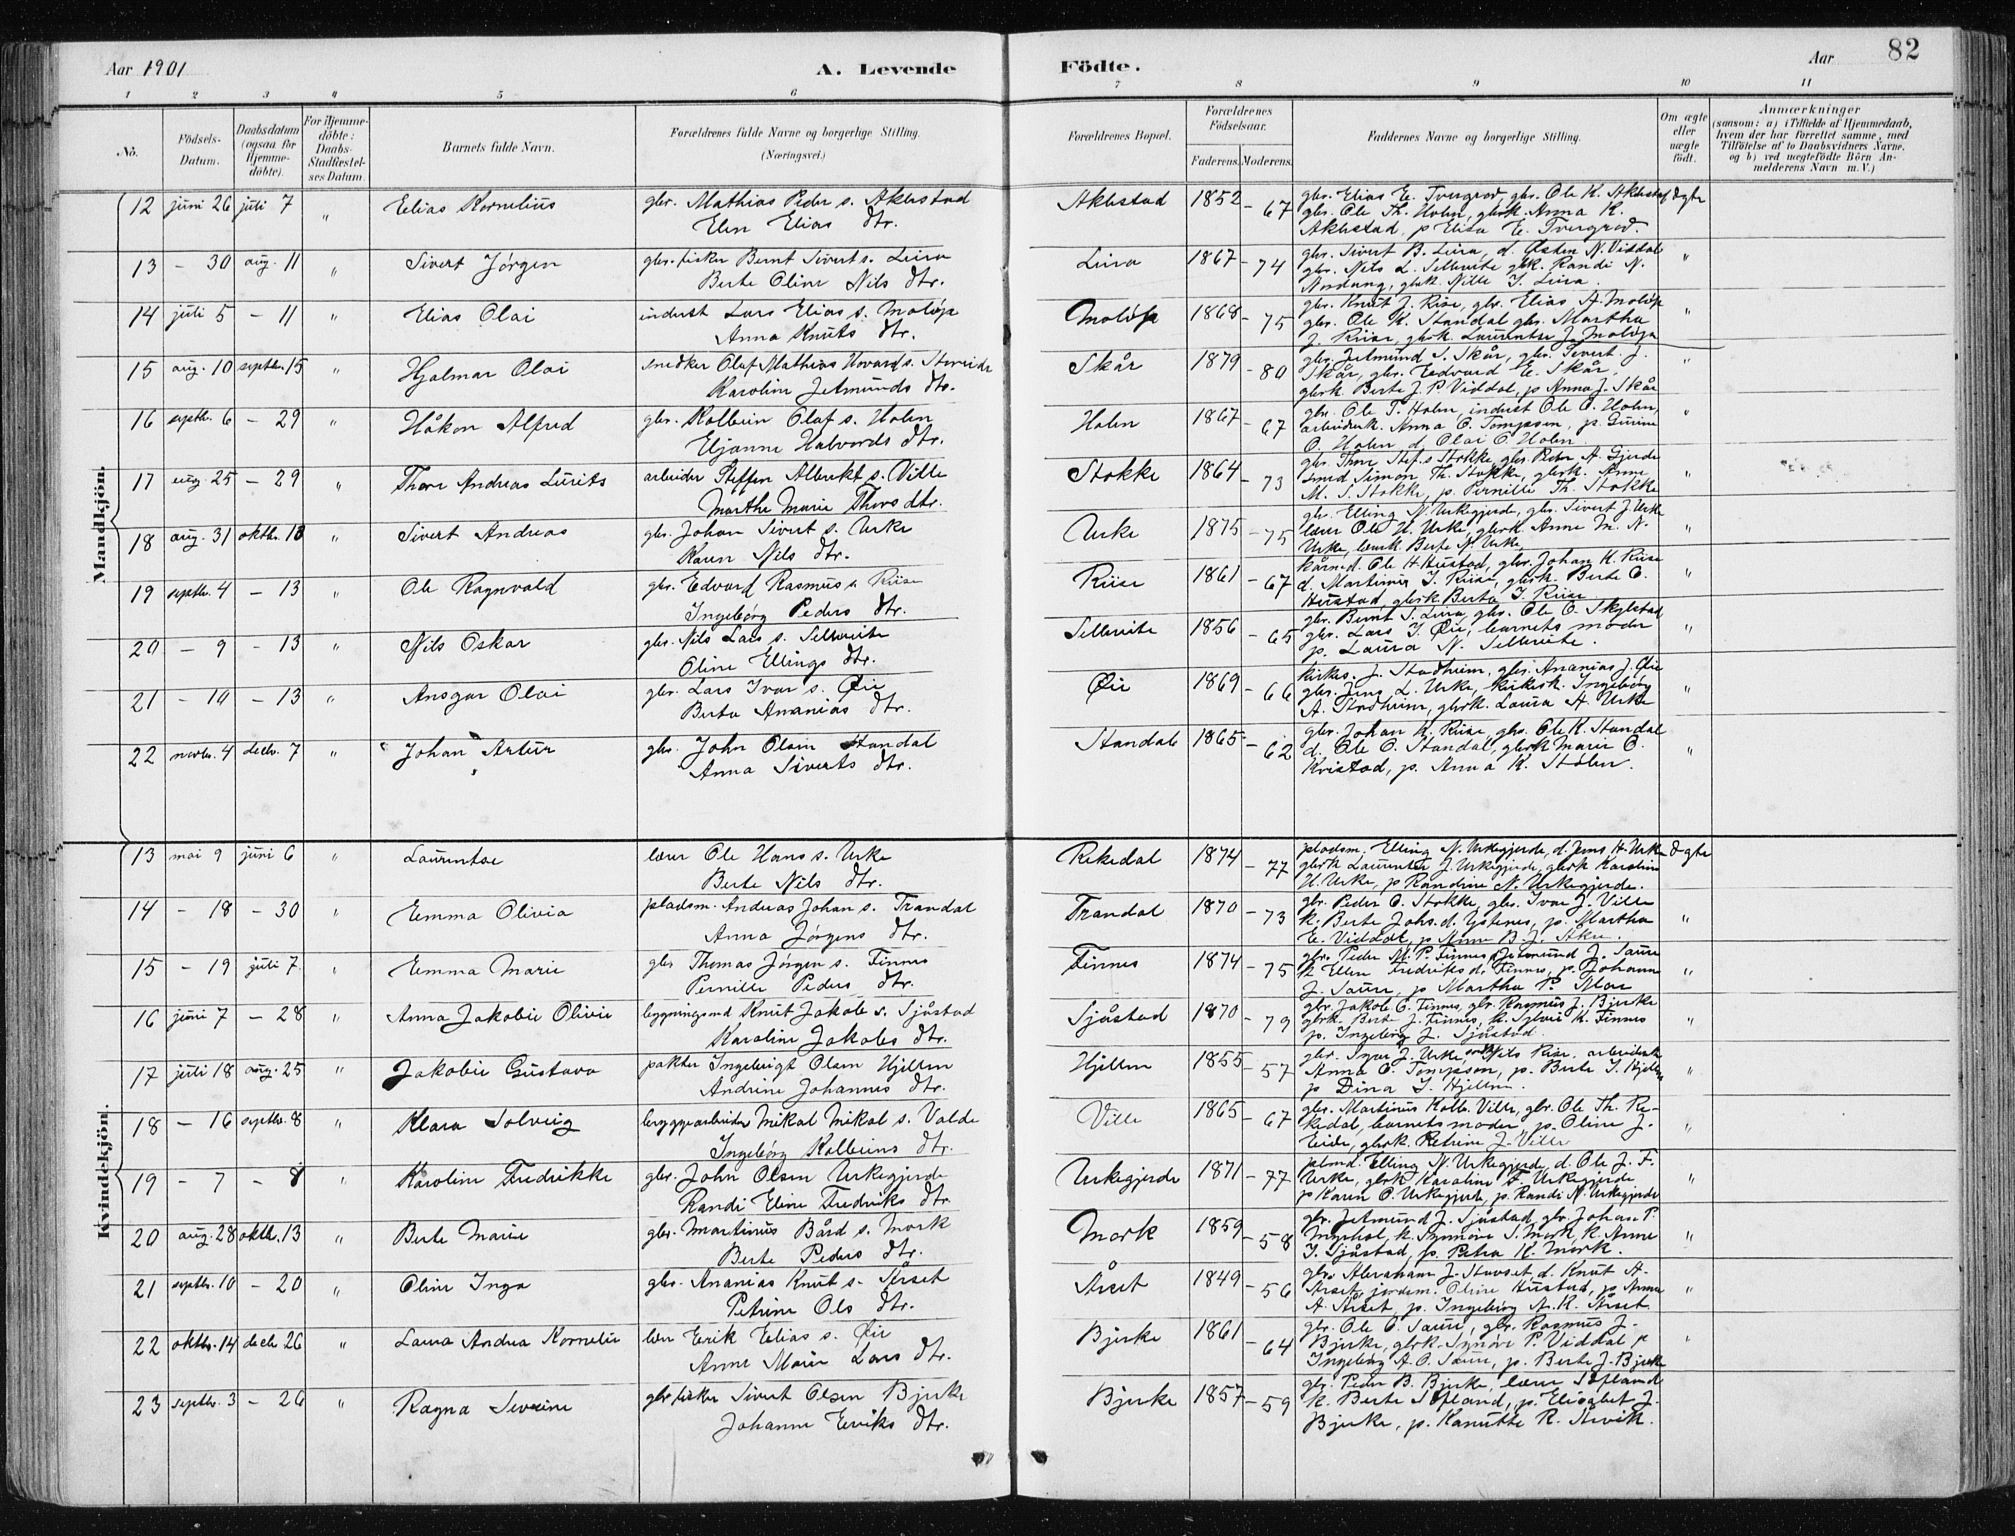 Aar 1901
A. Levende Födte.
Aar 82
1 2 3 4 5 6 7 8 9 10 11
No. Födsels-Datum. Daabsdatum (ogsaa for Hjemmedöbte). For Hjemmedöbte: Daabs-Stadfæstelses Datum. Barnets fulde Navn. Forældrenes fulde Navne og borgerlige Stilling. (Næringsvei.) Forældrenes Bopæl. Forældrenes Födselsaar. Faderens. Moderens. Faddernes Navne og borgerlige Stilling. Om ægte eller uægte födt. Anmærkninger (saasom: a) i Tilfælde af Hjemmedaab, hvem der har forrettet samme, med Tilföielse af to Daabsvidners Navne, og b) ved uægtefödte Börn Anmelderens Navn m. V.)
Mandkjön.
12 juni 26 juli 7 " Elias Kornelius gbr. Mathias Peder s. Aklestad Aklestad 1852 gbr. Elias E. Tvergrov, gbr. Ole K. Aklestad ægte
Elen Elias dtr. - 67 gbr. Ole Th. Holen, gbrk. Anna K.
Aklestad, p Elisa E. Tvergrov.
13 - 30 aug. 11 " Sivert Jørgen gbr. fisker Bernt Siverts. Liva Liva 1867 gbr. Sivert B. Liva, d. Østen N. Viddal "
Berte Oline Nils dtr. - 74 gbr. Nils L. Sellereite gbk. Randi N.
Nordang, gbrk. Nille I. Liva.
14 juli 5 - 11 " Elias Olai inderst Lars Elias s. Moløja Moløja 1868 gbr. Knut J. Riise, gbr. Elias A. Moløja "
Anna Knuts dtr. - 75 gbr. Ole K. Standal gbr. Martha
J. Riise, gbrk. Laurentse J. Moløja
15 aug. 10 septbr. 15 " Hjalmar Olai snedker Olaf Mathias Havards. Skår 1879 gbr. Jetmund S. Skår, gbr. Sivert J. "
Karoline Jetmunds dtr. - 80 Skår, gbr. Edvard E. Skår,
gbrk. Berte J. P. Viddal, p Anna J. Skår
16 septbr. 6 - 29 " Håkon Alfred gbr. Kolbein Olaf s. Holen Holen 1867 gbr. Ole T. Holen, inderst Ole O. Holen, "
Eljanne Halvards dtr. - 67 arbeiderk. Anna O. Tompson, p. Gurine
O. Holen d. Olai O Holen.
17 aug. 25 - 29 " Thore Andreas Lurits arbeider Steffen Albrekt s. Ville Stokke 1864 gbr. Thore Stef.s Stokke, gbr. Peder A. Gjerde "
Marthe Marie Thors dtr. - 73 smed Simon Th. Stokke, gbrk. Anne
M. S. Stokke, p. Pernille Th. Stokke
18 aug. 31 oktbr. 13 " Sivert Andreas gbr. Johan Sivert s. Urke Urke 1875 gbr. Elling N. Urkegjerde, gbr. Sivert J. Urke "
Karen Nils dtr. - 75 lærer Ole H. Urke, gbrk. Anne M. N.
Urke, lærerk. Berte N. Urke
19 septbr. 4 - 13 " Ole Ragnvald gbr. Edvard Rasmus s. Riise Riise 1861 kårmd. Ole H. Hustad, gbr. Johan K. Riise "
Ingebørg Peders dtr. - 67 d. Martinus I. Riise, gbrk. Berte O.
Hustad, gbrk Berta J. Riise
20 - 9 - 13 " Nils Oskar gbr. Nils Lars s. Sellereite Sellereite 1856 gbr. Bernt S. Liva, gbr. Ole O. Skylstad "
Oline Ellings dtr. - 65 gbr. Lars I. Øie, barnets moder
p. Laura N. Sellereite.
21 - 10 - 13 " Ansgar Olai gbr. Lars Ivar s. Øie Øie 1869 kirkes. J. Stadheim, gbr. Ananias J. Øie "
Berta Ananias dtr. - 66 gbr. Jens L. Urke, kirkesk. Ingebørg
A. Stadheim, gbrk. Laura A. Urke
22 novbr. 4 decbr. 7 " Johan Artur gbr. John Olsen Standal Standal 1865 gbr. Johan K. Riise, gbr. Ole K. Standal "
Anna Siverts dtr. - 62 d. Ole O. Standal, gbrk Marie O.
Kvistad, p. Anna K. Stølen.
Kvindekjön.
13 mai 9 juni 6 " Laurentse lærer Ole Hans s. Urke Rekedal 1874 pladsm. Elling N. Urkegjerde, d. Jens H. Urke ægte
Berte Nils dtr. - 77 gbrk Laurentse J. Urkegjerde, gbrk Karoline
H. Urke, p Randine N. Urkegjerde.
14 - 18 - 30 " Emma Olivia pladsm. Andreas Johan s. Trandal Trandal 1870 gbr. Peder O. Stokke, gbr. Ivar J. Ville "
Anna Jørgens dtr. - 73 k. Berte Johs. d. Ystenes, p. Martha
E. Viddal, p Anne B. J. Åkre.
15 - 19 juli 7. " Emma Marie gbr Thomas Jørgen s. Finnes Finnes 1874 gbr. Peder M. P. Finnes, Jetmund J. Saure "
Pernille Peders dtr. - 75 k Ellen Fredriks d. Finnes, p. Johanna
J. Saure, p Martha P. Mo
16 juni 7 - 28 " Anna Jakobie Olivie bygningsmd Knut Jakob s. Sjåstad Sjåstad 1870 gbr. Jakob C. Finnes, gbr. Rasmus J. Bjerke "
Karoline Jakobs dtr. - 79 gbrk. Berte J. Finnes, k. Sylvie K. Finnes
p. Ingebørg J. Sjåstad
17 juli 18 aug. 25 " Jakobie Gustava pakter Ingebrigt Olsen Hjellen Hjellen 1855 gbr. Iver J. Urke, Nils Riise. arbeidersk "
Andrine Johannes dtr. - 57 Anna O. Tompson, p. Berte I. Hjellen
p Dina I. Hjellen.
18 - 16 septbr. 8 " Klara Solveig bryggearbeider Mikal Mikal s. Valde Ville 1865 gbr. Martinus Kolb. Ville, gbr. Ole Th. Re- "
Ingebørg Kolbeins dtr. - 67 kedal, barnets moder, p. Oline J.
Eide, gbrk. Petrine J. Ville
19 - 7 - 8 " Karoline Fredrikke gbr. John Olsen Urkegjerde Urkegjerde 1871 plsmd. Elling N. Urkegjerde, d. Ole J. F. "
Randi Eline Fredriks dtr - 77 Urke, gbrk Karoline F. Urkegjerde
p Karen O. Urkegjerde, p. Randi N. Urkegjerde
20 aug. 28 oktbr. 13 " Berte Marie gbr. Martinus Bård s. Mork Mork 1859 gbr. Jetmund J. Sjåstad, gbr. Johan P. "
Berte Peders dtr. - 58 Myrhol, k. Synnøve S. Mork, k. Anne
I. Sjåstad, p. Petra K. Mork.
21 septbr. 10 - 20 " Oline Inga gbr. Ananias Knut s. Årset Årset 1849 gbr. Abraham J. Stavset, d. Knut A. "
Petrine Ols dtr. - 56 Årset, jordem. Oline Hustad, p. Anna
A. Årset, p. Ingebørg A. K. Årset
22 oktbr. 14 decbr 26 " Laura Andrea Kornelie lærer Erik Elias s. Øie Bjerke 1861 gbr. Ole O. Saure, gbr. Rasmus J. "
Anne Marie Lars dtr. - 64 Bjerke, gbrk. Synøve P. Viddal p
Ingebørg A. O. Saure, p. Berte J. Bjerke
23 septbr. 3 - 26 " Ragna Severine gbr. fisker Sivert Olsen Bjerke Bjerke 1857 gbr. Peder B. Bjerke, lærer Sefland
Johanne Eriks dtr. - 59 k. Berte Sefland, p. Elisabet J.
Bjerke, p. Kanutte R. Årvik.